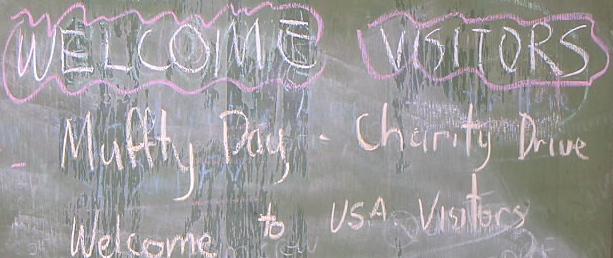 WELCOME VISITORS
- Muffty Day - Charity Drive
Welcome to USA Visitors